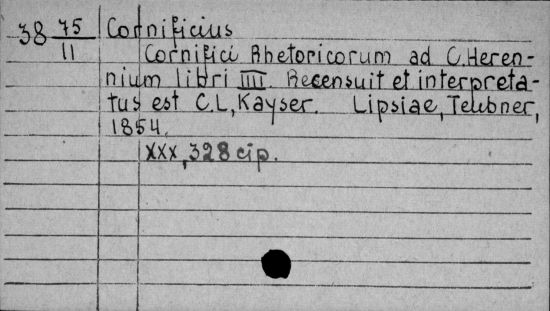 38 75/11 Cornificius
Cornifici Rhetoricorum ad C. Heren-
nium libri IIII. Recensuit et interpreta-
tus est C.L, Kayser. Lipsiae, Teubner,
1854.
XXX, 328 cip.